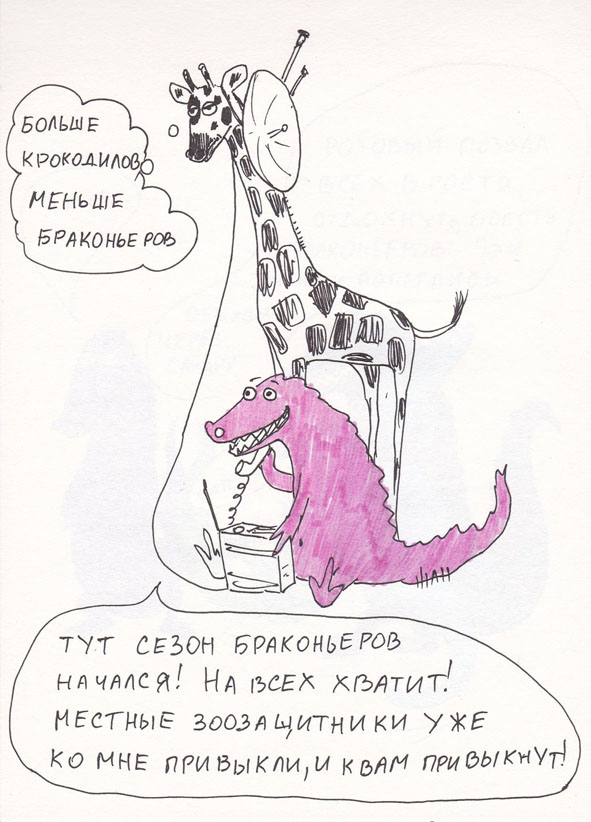 БОЛЬШЕ
КРОКОДИЛОВ
МЕНЬШЕ
БРАКОНЬЕРОВ
ТУТ СЕЗОН БРАКОНЬЕРОВ
НАЧАЛСЯ! НА ВСЕХ ХВАТИТ!
МЕСТНЫЕ ЗООЗАЩИТНИКИ УЖЕ
КО МНЕ ПРИВЫКЛИ, И К ВАМ ПРИВЫКНУТ!